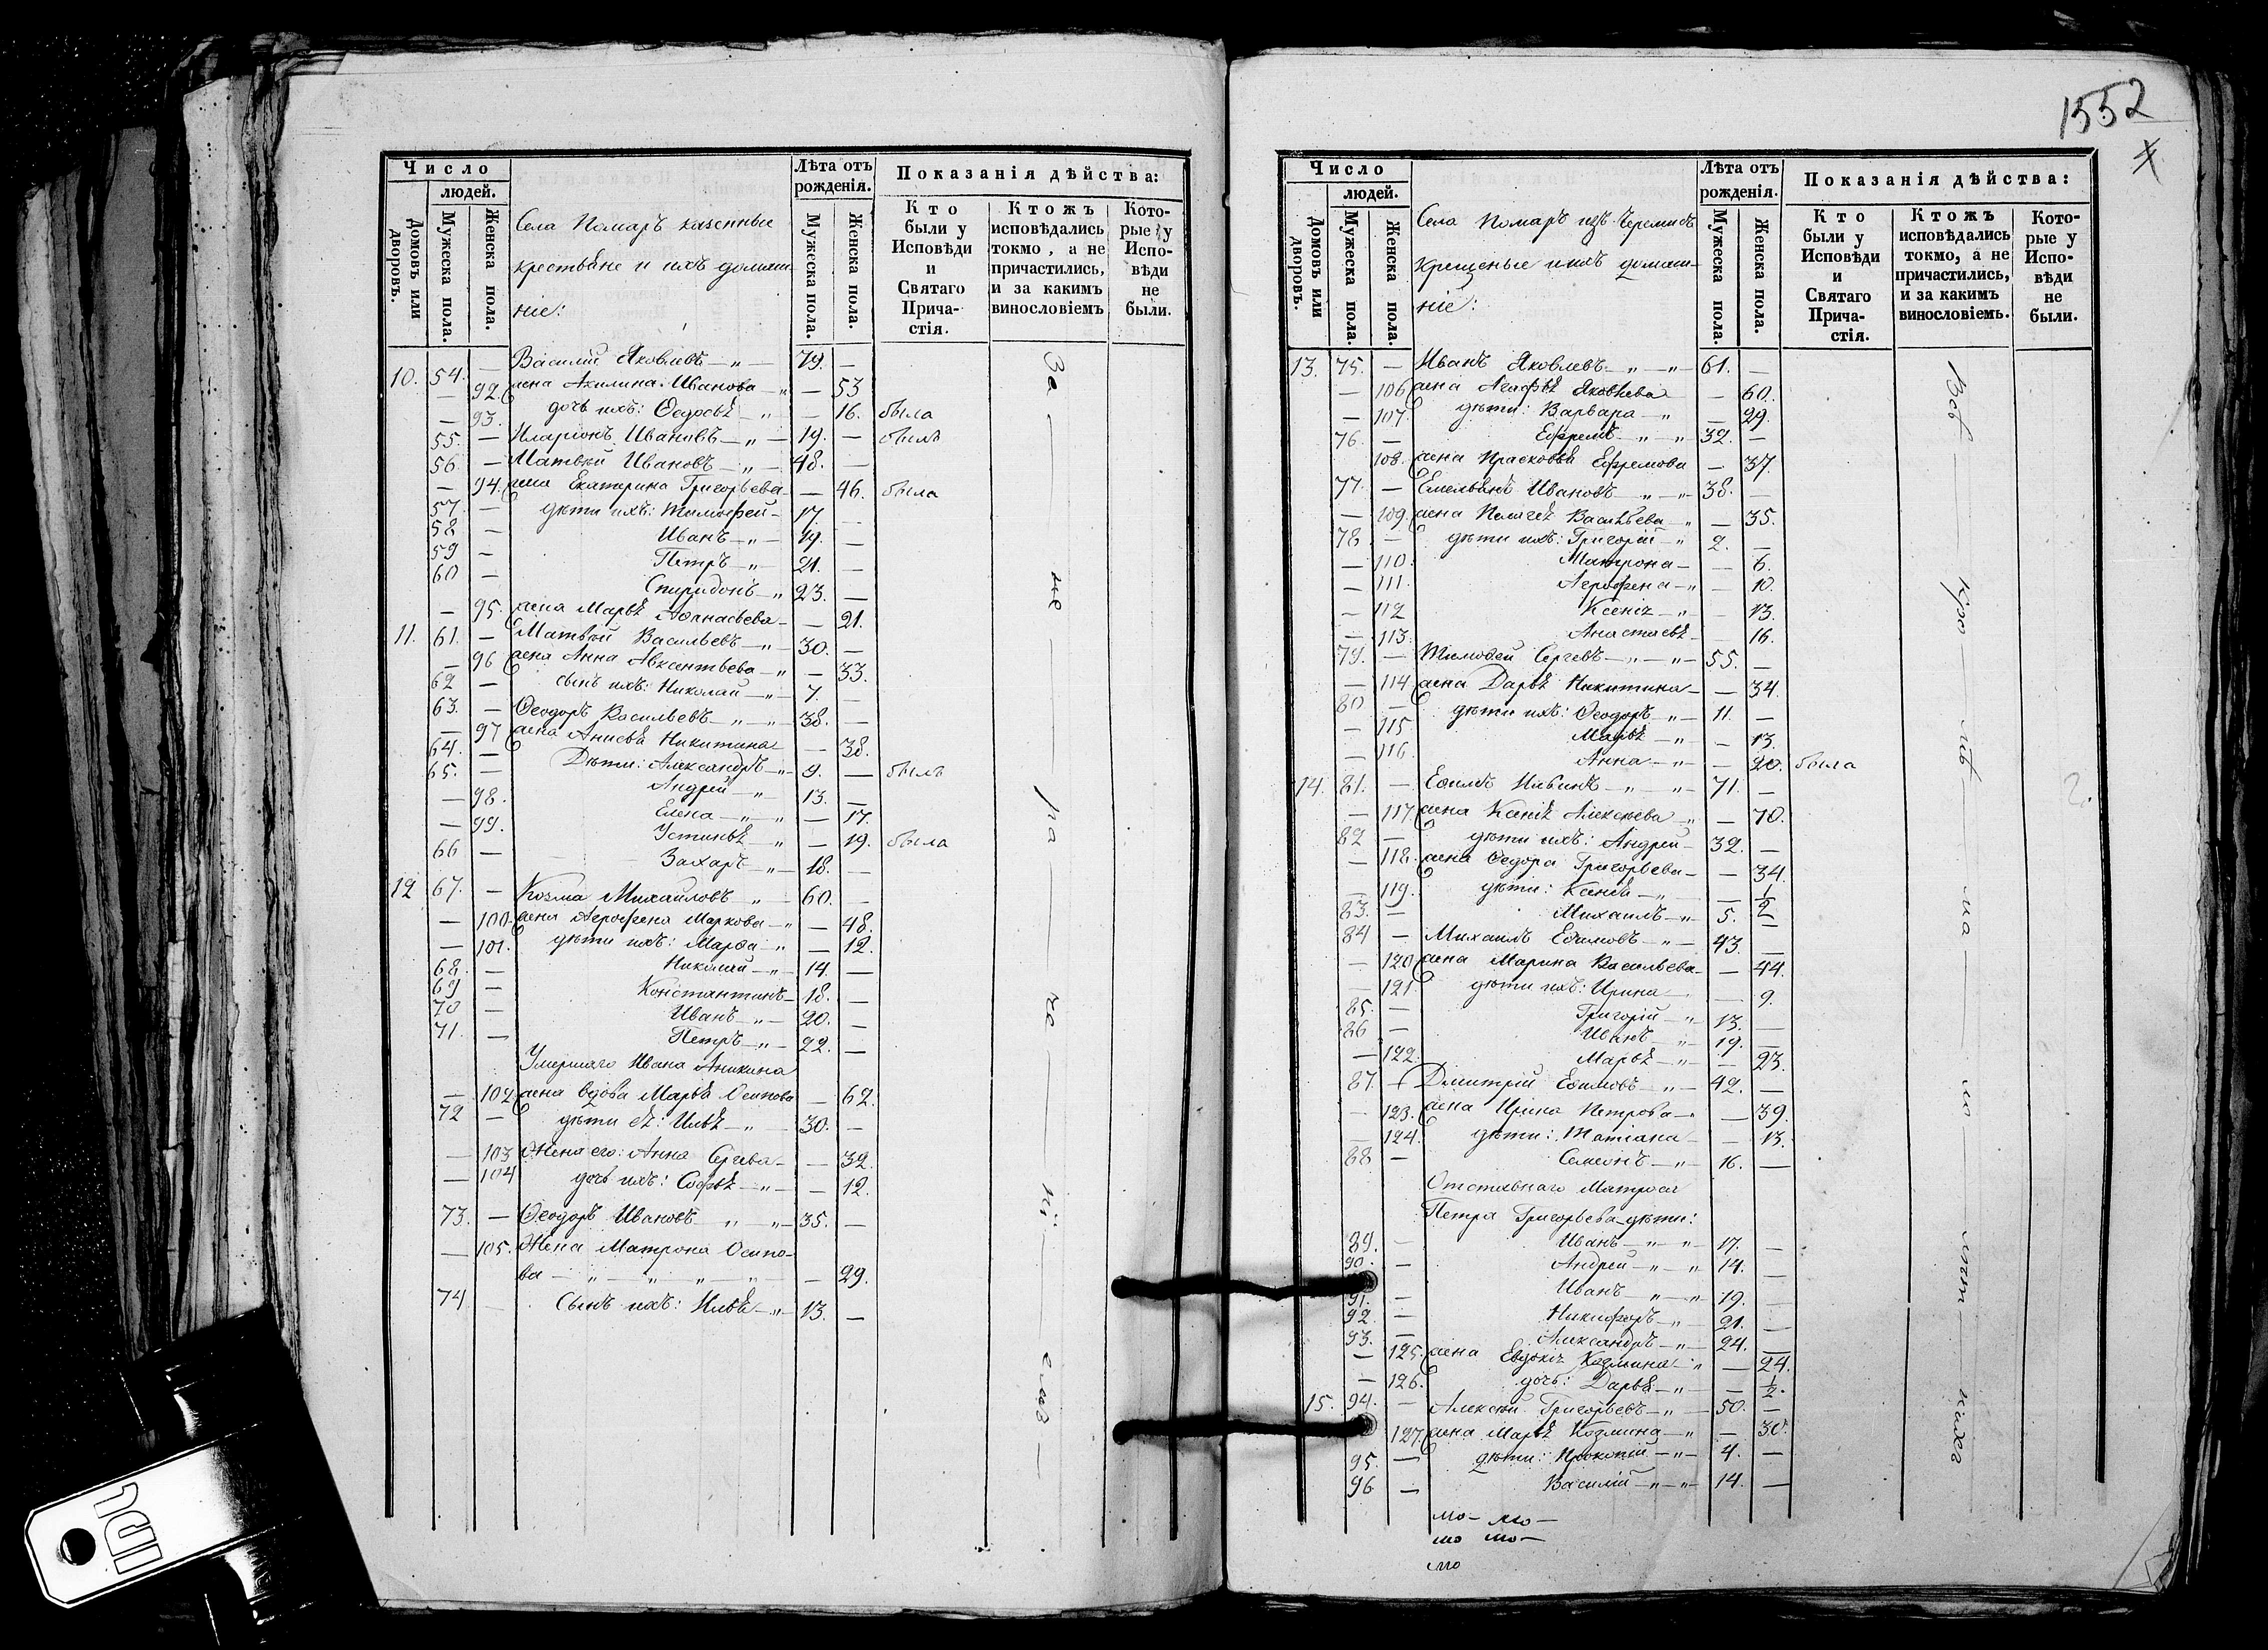 1552
4
Число
людей.
Домовъ или дворовъ.
Мужеска пола.
Женска пола.
Села Помаръ казенные
крестьяне и ихъ домаш-
ніе:
Лѣта отъ рожденія.
Мужеска пола.
Женска пола.
Показанія дѣйства:
Кто были у Исповѣди и Святаго Прича-стія.
Ктожъ исповѣдались токмо, а не причастились, и за какимъ винословіемъ
Кото-рые у Испо-вѣди не были.
10. 54. — Василій Яковлевъ — 79. —
— 92. жена Акилина Иванова — 53
— 93. дочь ихъ: Ѳедосья — 16. была
55. — Иларіонъ Ивановъ — 19. — былъ
56. — Матвѣй Ивановъ — 48. —
— 94. жена Екатерина Григорьева — 46. была
57. — дѣти ихъ: Тимофей — 17. —
58 — Иванъ — 19. —
59 — Петръ — 21. —
60 — Спиридонъ — 23. —
— 95. жена Марья Аѳанасьева — 21.
11. 61. — Матвѣй Васильевъ — 30. —
— 96 жена Анна Авксентьева — 33.
62 — сынъ ихъ: Николай — 7. —
63. — Ѳеодоръ Васильевъ — 38. —
— 97 жена Анисья Никитина — 38.
64. — Дѣти: Александръ — 9. — былъ
65. — Андрей — 13. —
— 98. Елена — 17.
— 99. Устинья — 19. была
66 — Захаръ — 18. —
12 67. — Козма Михайловъ — 60. —
— 100. жена Агрофена Маркова — 48.
— 101. дѣти ихъ: Марѳа — 12.
68. — Николай — 14. —
69 — Константинъ — 18. —
70 — Иванъ — 20. —
71. — Петръ — 22. —
Умершаго Ивана Аникина
— 102 жена вдова Марья Осипова — 62.
72 — дѣти ея: Илья — 30. —
— 103 Жена его: Анна Сергева — 32.
— 104 дочь ихъ: Софья — 12.
73. — Ѳеодоръ Ивановъ — 35. —
— 105. Жена Матрона Осипо-
ва — 29.
74 Сынъ ихъ: Илья — 13. —
За — не — ра — че — ні — емъ —
Число
людей.
Домовъ или дворовъ.
Мужеска пола.
Женска пола.
Села Помаръ изъ Черемисъ
крещеные и ихъ домаш-
ніе:
Лѣта отъ рожденія.
Мужеска пола.
Женска пола.
Показанія дѣйства:
Кто были у Исповѣди и Святаго Прича-стія.
Ктожъ исповѣдались токмо, а не причастились, и за какимъ винословіемъ.
Кото-рые у Испо-вѣди не были.
13. 75. — Иванъ Яковлевъ — 61. —
— 106 жена Агафья Яковлева — 60.
— 107. дѣти: Варвара — 29.
76. — Ефремъ — 32. —
108. жена Прасковья Ефремова — 37.
77. — Емельянъ Ивановъ — 38. —
— 109. жена Васильева — 35.
78. — дѣти ихъ: Григорій — 2. —
— 110. Матрона — 6.
— 111. Агрофена — 10.
— 112 Ксенія — 13.
— 113. Анастасья — 16.
79. — Тимоѳей Сергевъ — 55. —
— 114 жена Дарья Никитина — 34.
80 — дѣти ихъ: Ѳеодоръ — 11. —
— 115 Марья — 13.
— 116. Анна — 20. была
14. 81. — Еѳимъ Ильинъ — 71. —
— 117. жена Ксенія Алексѣева — 70.
82 — дѣти ихъ: Андрей — 32. —
— 118. жена Ѳедора Григорьева — 34.
— 119. дѣти: Ксенья — 1/2
83. — Михаилъ — 5. —
84 — Михаилъ Еѳимовъ — 43. —
— 120 жена Марина Васильева — 44.
— 121. дѣти ихъ: Ирина — 9.
85. — Григорій — 13. —
86 — Иванъ — 19. —
— 122. Марья — 23.
87. — Дмитрій Еѳимовъ — 42. —
— 123. жена Ирина Петрова — 39.
— 124. дѣти: Татіана — 13.
88 — Семенъ — 16. —
Отставнаго Матроса
Петра Григорьева дѣти:
89. — Иванъ — 17. —
90. — Андрей — 14. —
91. — Иванъ — 19. —
92. — Никифоръ — 21. —
93. — Александръ — 24. —
— 125. жена Евдокія Козмина — 24.
— 126. дочь: Дарья — 1/2.
15. 94. — Алексѣй Григорьевъ — 50. —
127. жена Марья Козмина — 30.
95. — дѣти: Прокопій — 4. —
96 — Василій — 14. —